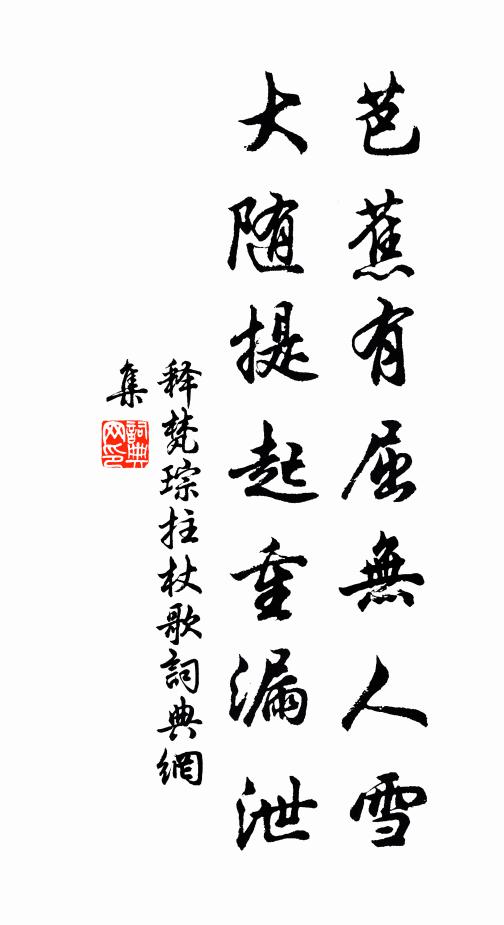 芭蕉有屈無人雪
大随提起重漏泄
释梵琮拄杖歌詞典網
集
詞典网印